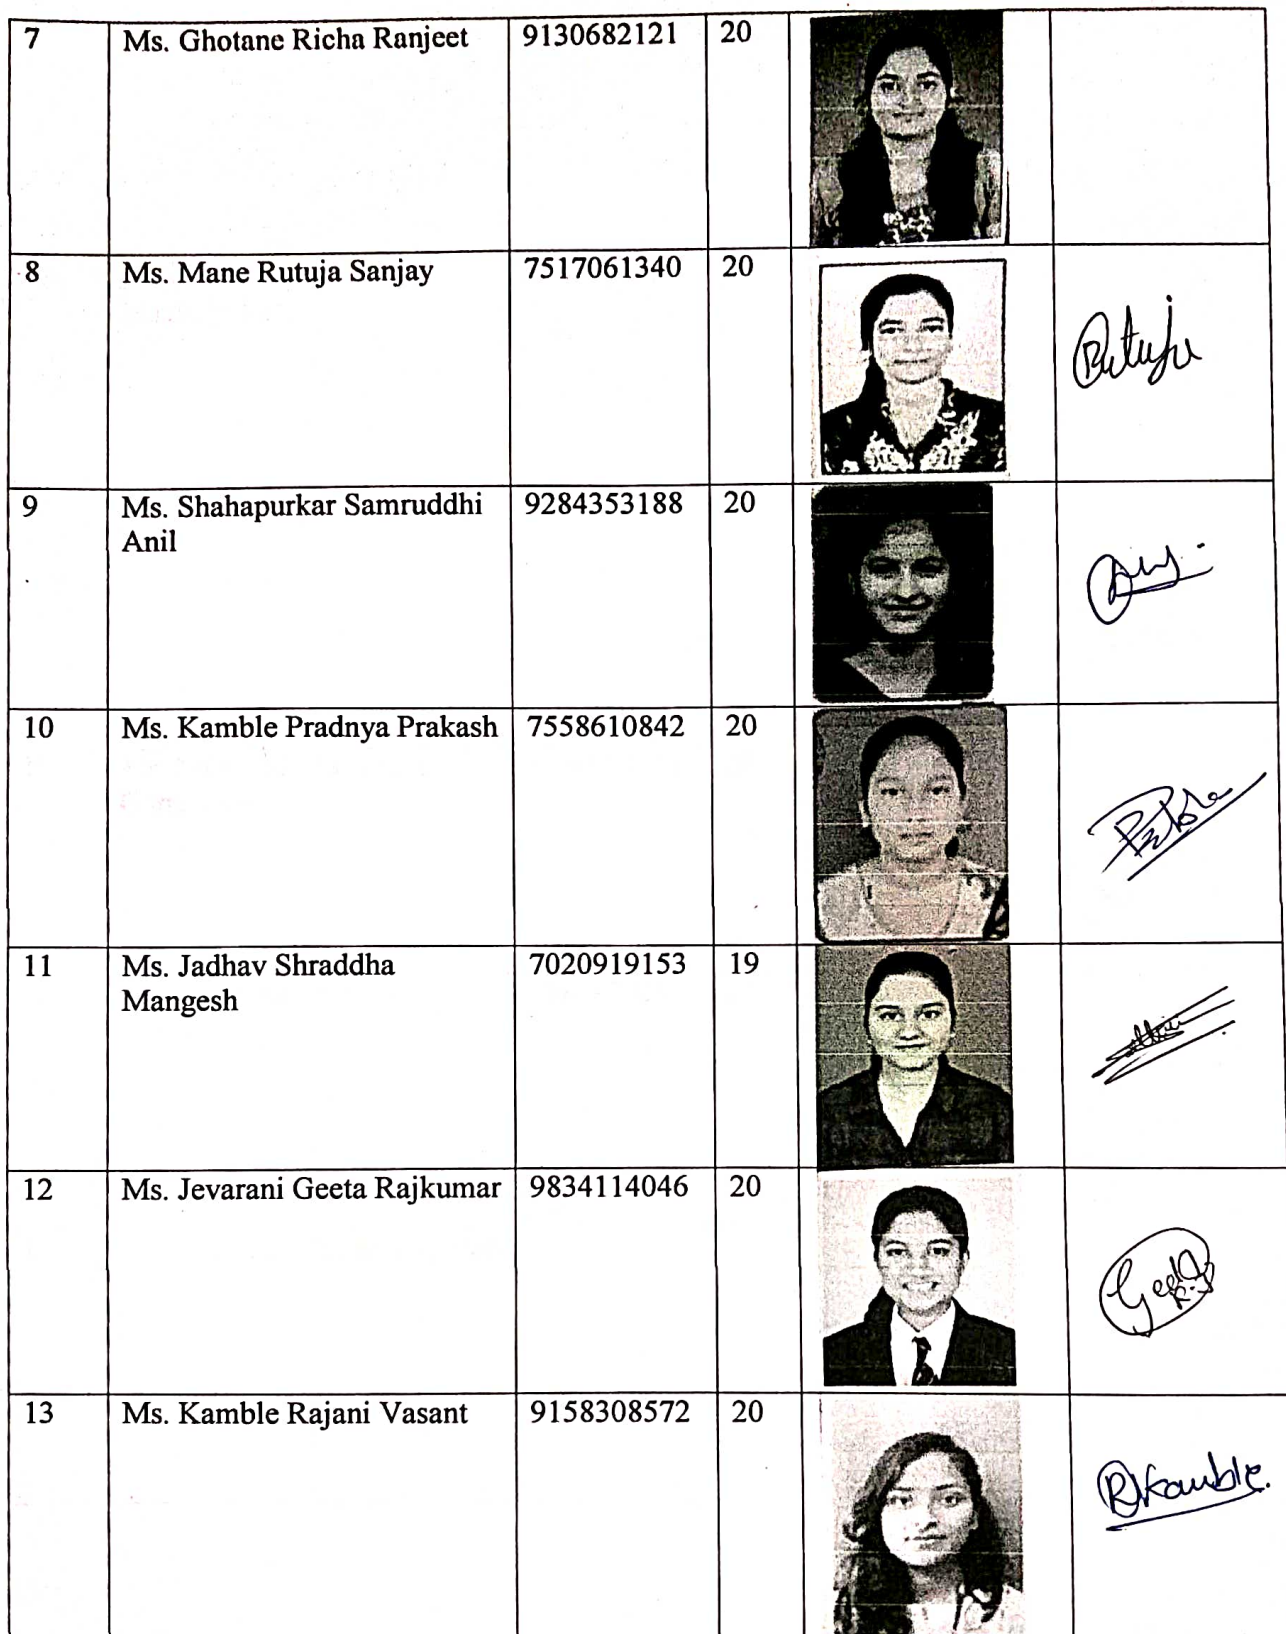 7 Ms. Ghotane Richa Ranjeet 9130682121 20
8 Ms. Mane Rutuja Sanjay 7517061340 20
Rutuja
9 Ms. Shahapurkar Samruddhi 9284353188 20
Anil
10 Ms. Kamble Pradnya Prakash 7558610842 20
11 Ms. Jadhav Shraddha 7020919153 19
Mangesh
12 Ms. Jevarani Geeta Rajkumar 9834114046 20
Geeta
13 Ms. Kamble Rajani Vasant 9158308572 20
RVKamble.